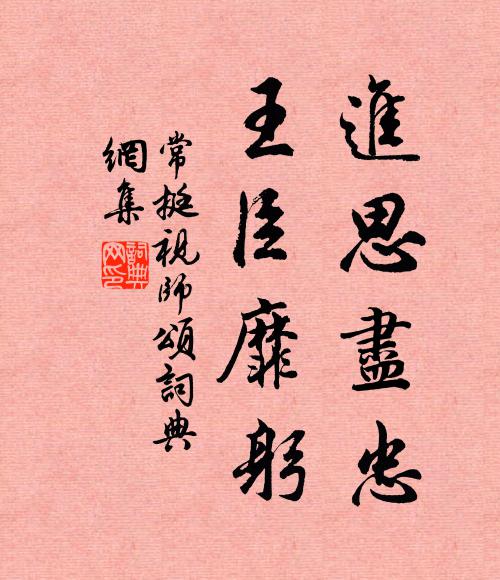 進思盡忠
王臣靡躬
常挺視師頌詞典
網集
詞典網印